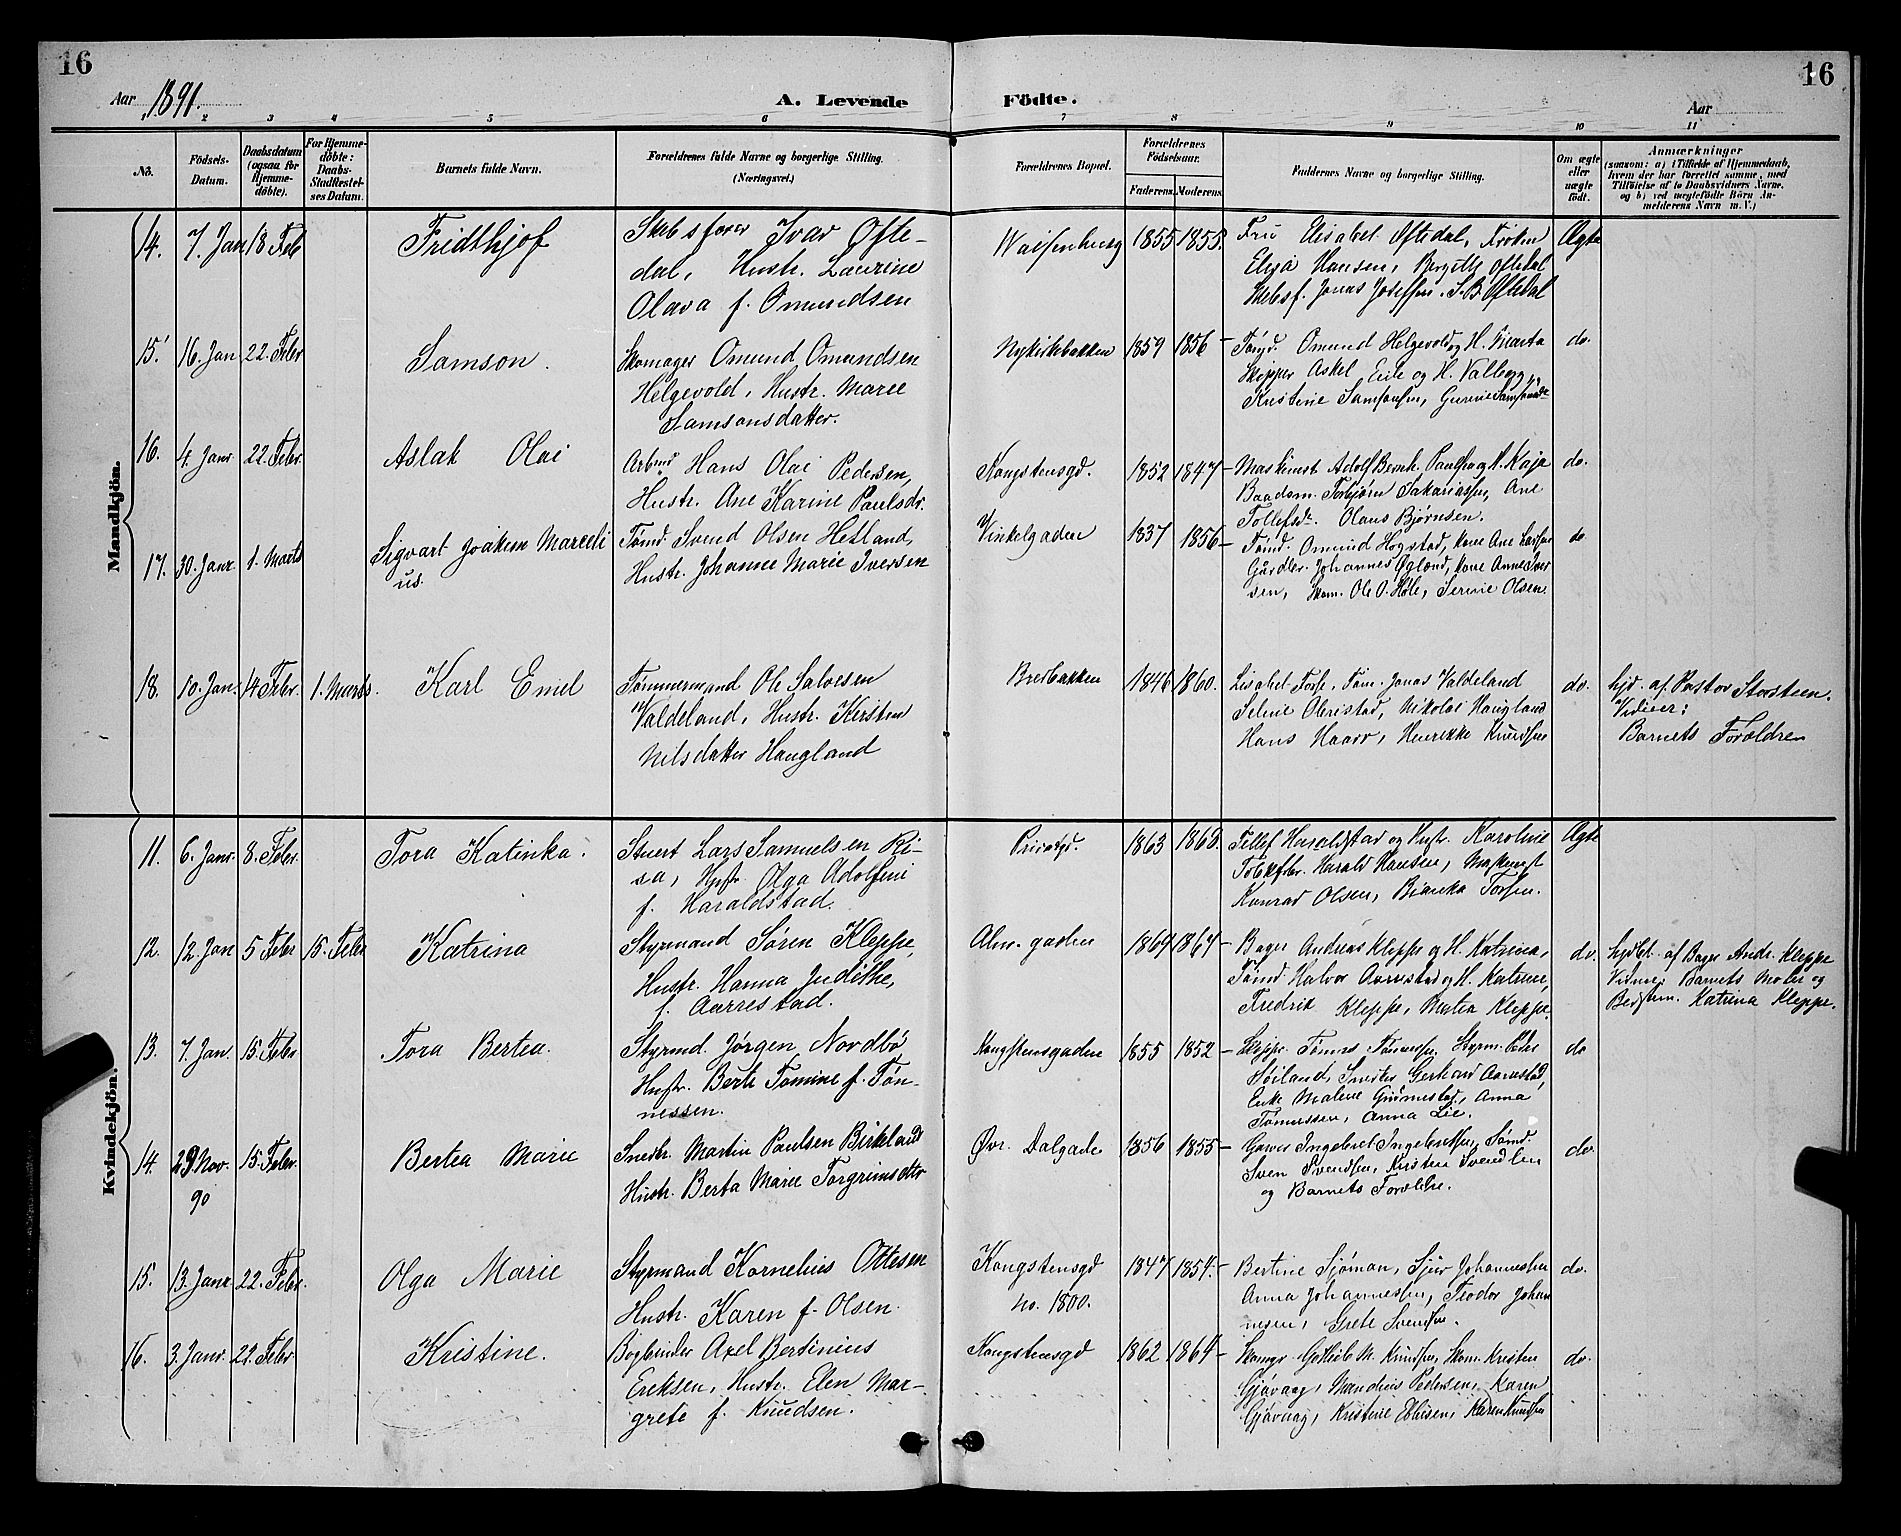 16
16
Aar 1891.
A. Levende Födte.
Aar
1 2 3 4 5 6 7 8 9 10 11
No.
Födsels-Datum.
Daabsdatum (ogsaa for Hjemme-döbte).
For Hjemme-döbte: Daabs-Stadfæstel-ses Datum.
Barnets fulde Navn.
Forældrenes fulde Navne og borgerlige Stilling. (Næringsvei.)
Forældrenes Bopæl.
Forældrenes Födselsaar.
Faderens. Moderens.
Faddernes Navne og borgerlige Stilling.
Om ægte eller uægte födt.
Anmærkninger
(saasom: a) i Tilfælde af Hjemmedaab, hvem der har forrettet samme, med Tilföielse af to Daabsvidners Navne. og b) ved uægtefödte Börn An-melderens Navn m. V.)
Mandkjön.
14. 7. Jan 18 Feb Fridthjof
Skibsfører Ivar Ofte-
dal, Hustr. Laurine
Olava f. Omundsen
Waisenhusg 1855 1855.
Fru Elisabet Oftedal, Frøken
Elisa Hansen, Bergith Oftedal
Skibsf. Jonas Josefsen. S. B. Oftedal
Ægte
15. 16. Jan 22. Febr Samson.
Skomager Omund Omundsen
Helgevold, Hustr. Marie
Samsonsdatter.
Nykirkebakken 1859 1856
Omund Helgevold og H. Marta
Skipper Askel Eile og H. Valborg,
Kristine Samsonsen, Gurine Samsonsdr
do.
16. 4. Janr 22. Febr. Aslak Olai
Arbmd Hans Olai Pedersen,
Hustr. Ane Karine Paulsdr.
Kongstensgd. 1852 1847
Maskinist Adolf Bernh. Paulsen og H. Kaja
Baadsm. Torbjørn Sakariassen, Ane
Tollefsdr. Olaus Bjørnsen.
do.
17. 30. Janr 1. Marts Sigvart Joakim Marceli
us.
Tømd. Svend Olsen Hetland,
Hustr. Johanne Marie Iversen
Vinkelgaden 1837 1856
Tømd. Omund Hogstad, Kone Ane Larsen
Gårdbr. Johannes Øglænd, Kone Anne Iver
sen, Skom. Ole O. Hole, Serine Olsen.
do
18. 10. Jan. 14 Febr. 1. Marts. Karl Emil
Tømmermand Ole Salvesen
Valdeland, Hustr. Kirsten
Nilsdatter Haugland
Bredbakken 1846 1860.
Lisabet Torse, Tøm. Jonas Valdeland
Seline Olmstad, Nikolai Haugland
Hans Haarr, Henrikke Knudsen
do.
hjd. af Pastor Storsteen.
Vidner:
Barnets Forældren
Kvindekjön.
11. 6. Janr. 8. Febr. Tora Katinka.
Stuert Lars Samuelsen Ri-
sa, Hustr. Olga Adolfini
f. Haraldstad.
1863 1863.
Tellef Haraldstad og Hustr. Karoline
Harald Hansen,
Konrad Olsen, Bianka Torsen.
Ægte
12. 12. Jan 5 Febr 15. Febr Katrina
Styrmand Søren Kleppe,
Hustr. Hanna Judithe,
f. Aarrestad.
Alm. gaden 1864 1864
Bager Andreas Kleppe og H. Katrina,
Tømd. Halvor Aarrestad og H. Katrine,
Fredrik Kleppe, Martin Kleppe.
do.
hjdbt. af Bager Andr. Kleppe
Vidner: Barnets Moder og
Katrina Kleppe.
13. 7. Jan. 15. Febr Tora Bertea.
Styrmd. Jørgen Nordbø
Hustr. Berte Tomine f. Tøn-
nessen.
Kongstensgaden 1855 1852
Skippr. Tømes Tønnessen, Styrm. Peder
Søiland, Snedker Gerhard Aarrestad,
Enke Malene Grimestad, Anna
Tønnessen, Anna Lie.
do
14. 29 Nov. 90 15. Febr. Bertea Marie
Snedk. Martin Paulsen Birkeland
Hustr. Berta Marie Torgrimsdttr
Øvr. Dalgade 1856 1855
Garver Ingebret Ingebretsen, Tømd.
Sven Svendsen, Kristen Svendsen
og Barnets Forældre.
do.
15. 13. Janr. 22. Febr. Olga Marie
Styrmand Kornelius Ottesen
Hustr. Karen f. Olsen.
Kongstensgd
no. 1800.
1847 1854.
Bertine Sjøman, Sjur Johannesen
Anna Johannesen, Teodor Johan
nesen, Grete Svendsen.
do.
16. 3. Janr. 22. Febr Kristine.
Bogbinder Axel Bertinius
Eriksen, Hustr. Elen Mar-
grete f. Knudsen.
Kongstensgd 1862 1864
Skomgr. Gotlieb M. Knudsen, Skom. Kristen
Gjøvaag, Mandius Pedersen, Karen
Gjøvaag, Kristine Ellisen, Karen Knudsen
do.